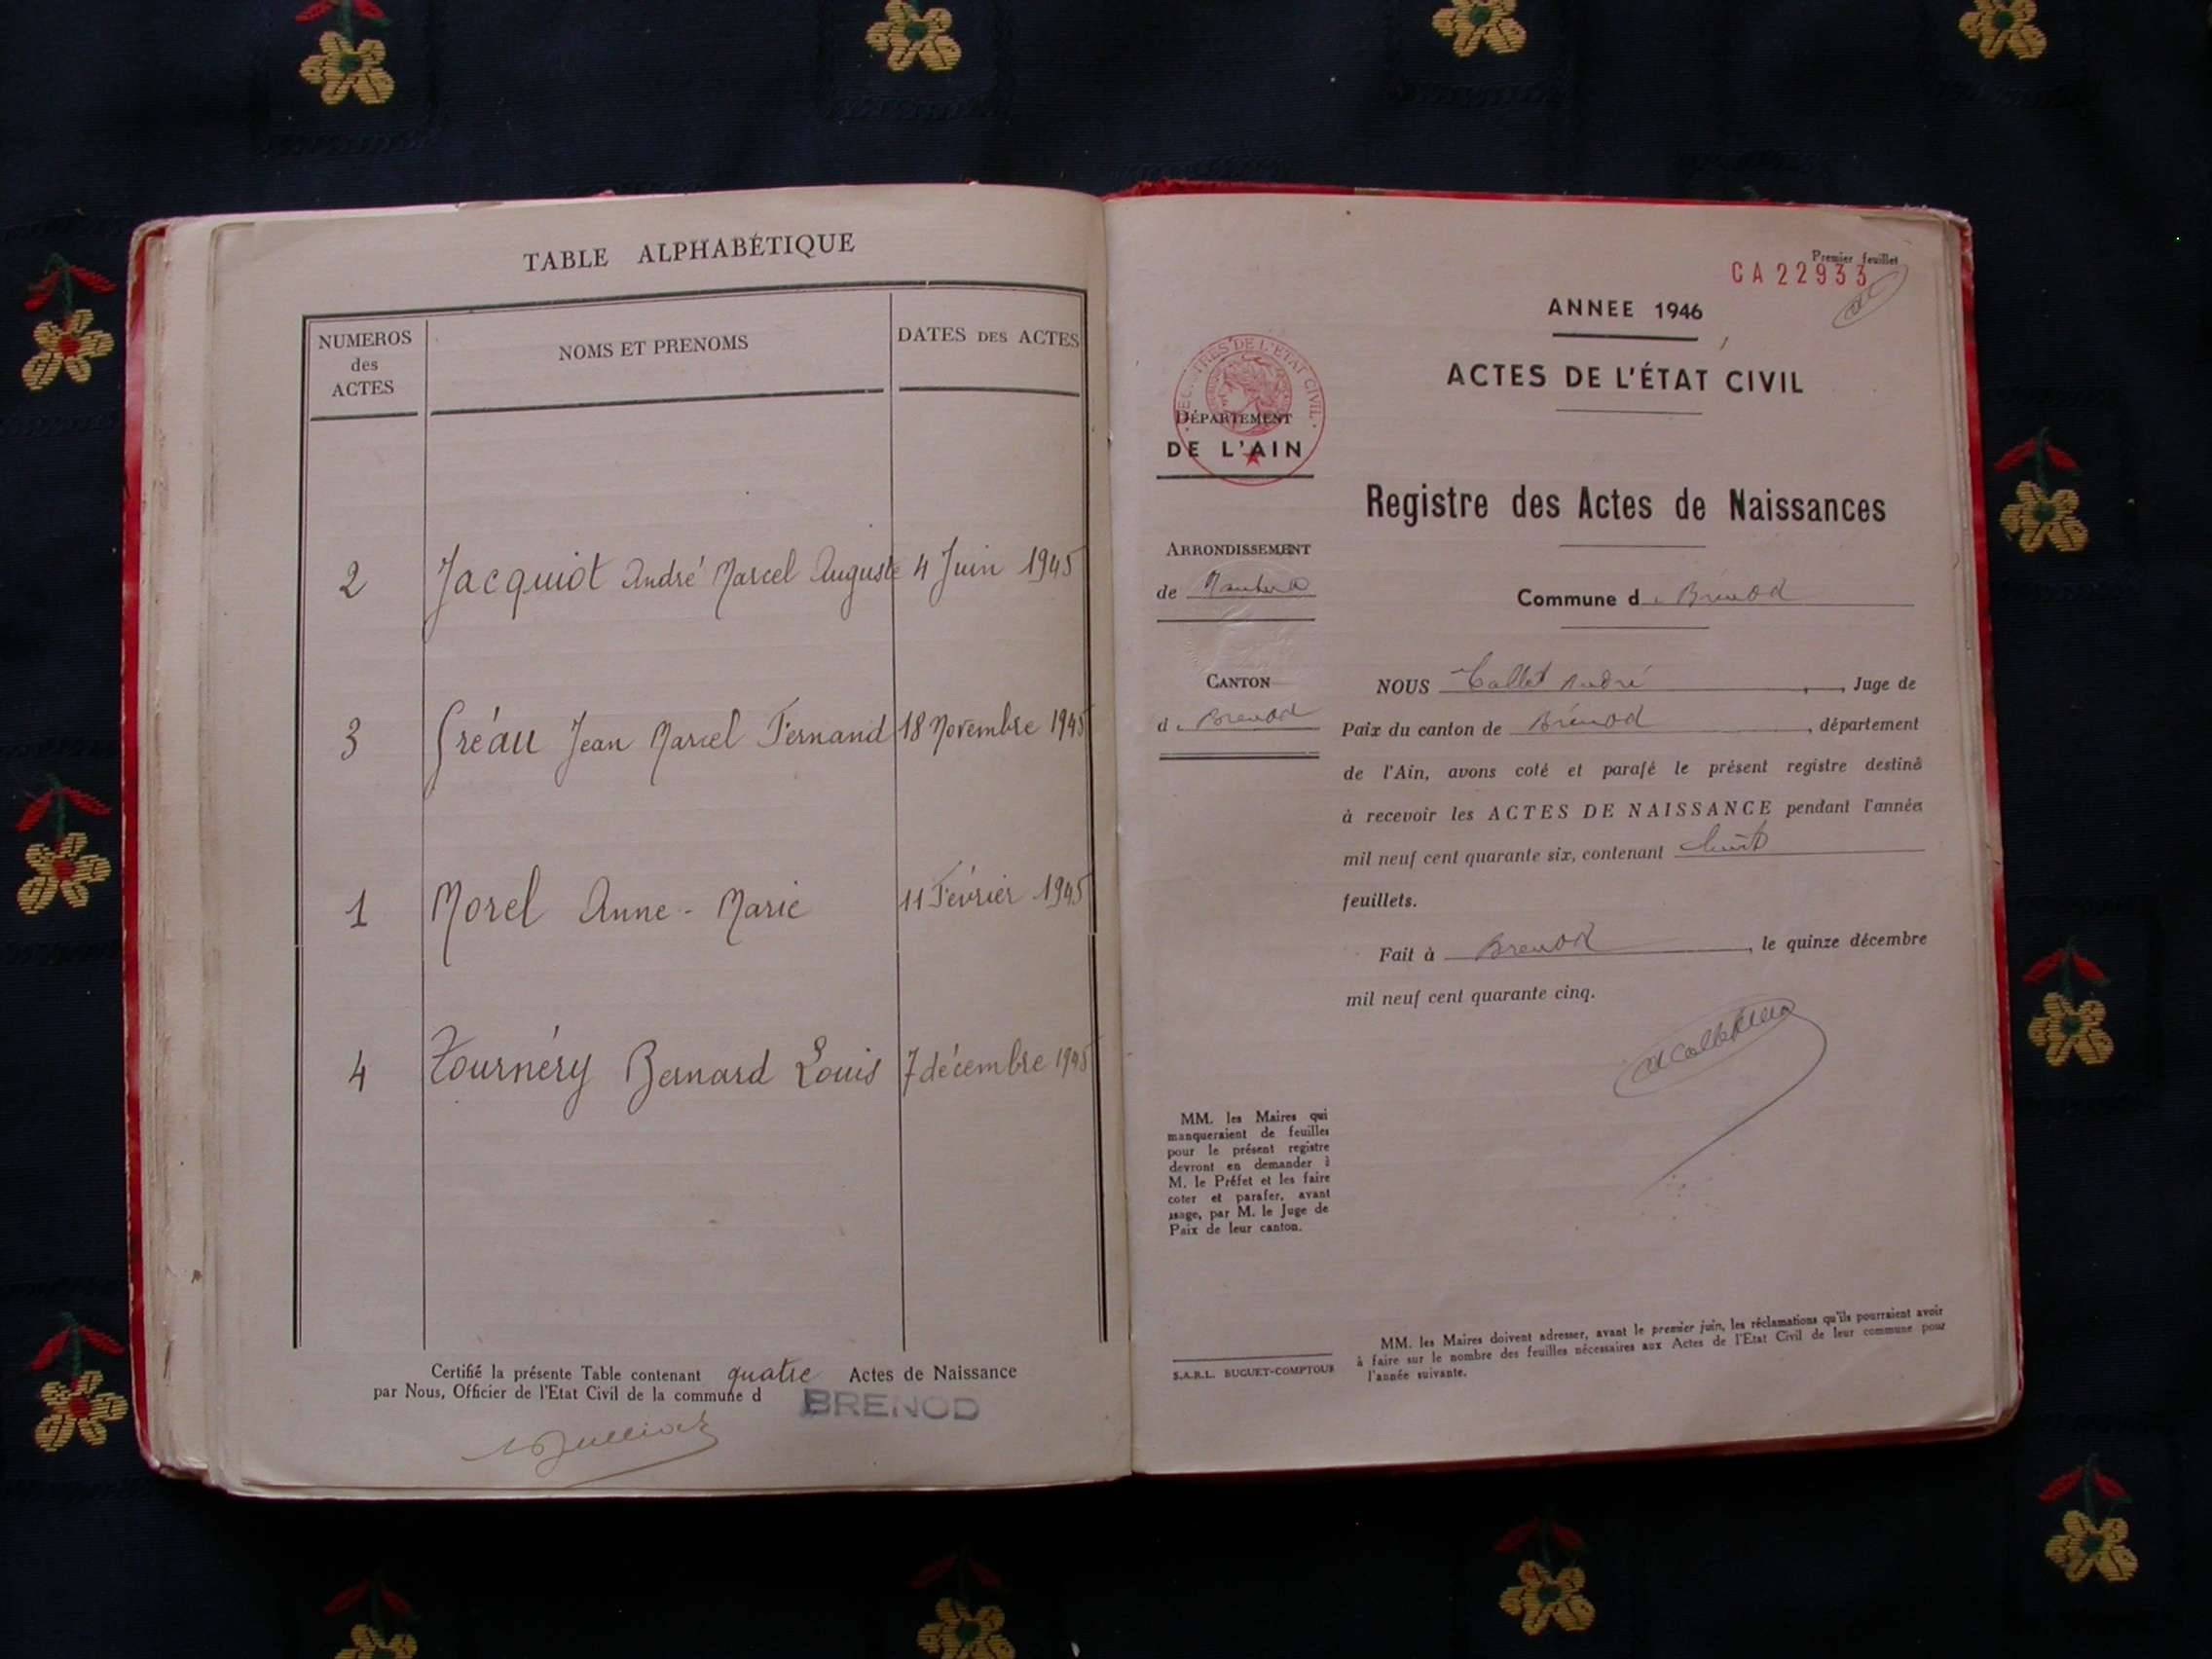 TABLE ALPHABÉTIQUE
NUMEROS des ACTES
NOMS ET PRENOMS
DATES DES ACTES
2 Jacquiot André Marcel Auguste 4 Juin 1945
3 Gréau Jean Marcel Fernand 18 Novembre 1945
1 Morel Anne-Marie 11 Février 1945
4 Tournéry Bernard Louis 7 décembre 1945
Certifié la présente Table contenant quatre Actes de Naissance
par Nous, Officier de l'Etat Civil de la commune d BRENOD
Premier feuillet
CA 22933
ANNEE 1946
ACTES DE L'ÉTAT CIVIL
REGISTRES DE L'ETAT CIVIL
DÉPARTEMENT
DE L'AIN
Registre des Actes de Naissances
ARRONDISSEMENT
de Nantua
Commune de Brénod
CANTON
de Brenod
NOUS Collet André, Juge de
Paix du canton de Brénod, département
de l'Ain, avons coté et parafé le présent registre destiné
à recevoir les ACTES DE NAISSANCE pendant l'année
mil neuf cent quarante six, contenant huit
feuillets.
Fait à Brenod, le quinze décembre
mil neuf cent quarante cinq.
MM. les Maires qui
manqueraient de feuilles
pour le présent registre
devront en demander à
M. le Préfet et les faire
coter et parafer, avant
usage, par M. le Juge de
Paix de leur canton.
S.A.R.L. BUGUET-COMPTOUR
MM. les Maires doivent adresser, avant le premier juin, les réclamations qu'ils pourraient avoir
à faire sur le nombre des feuilles nécessaires aux Actes de l'Etat Civil de leur commune pour
l'année suivante.